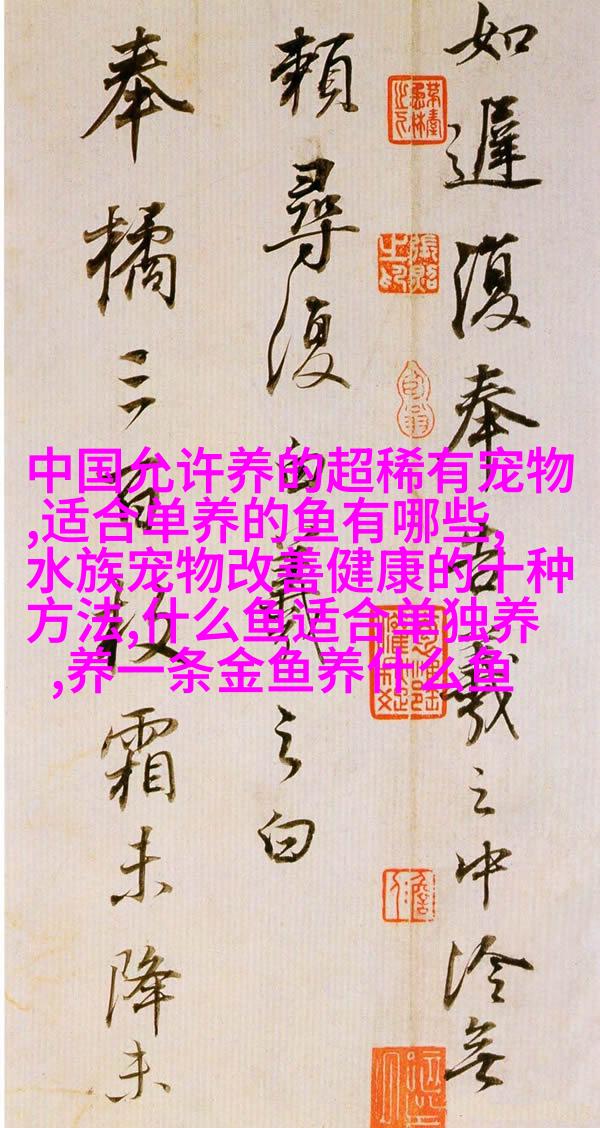 中国允许养的超稀有宠物
,适合单养的鱼有哪些,
水族宠物改善健康的十种
方法,什么鱼适合单独养
,养一条金鱼养什么鱼
如遲復奉告羲之中冷無
賴尋復白羲之白
奉橘三百枚霜未降未